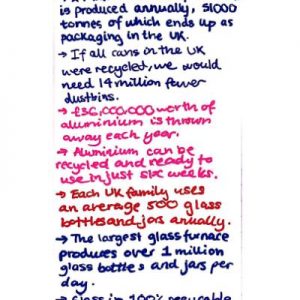 is produced annually, 51000
tonnes of which ends up as
packaging in the UK.
→ If all cans in the UK
were recycled, we would
need 14 million fewer
dustbins.
→ £36,000,000 worth of
aluminium is thrown
away each year.
→ Aluminium can be
recycled and ready to
use in just six weeks.
→ Each UK family uses
an average 500 glass
bottles and jars anually.
→ The largest glass furnace
produces over 1 million
glass bottles and jars per
day.
→ Glass is 100%